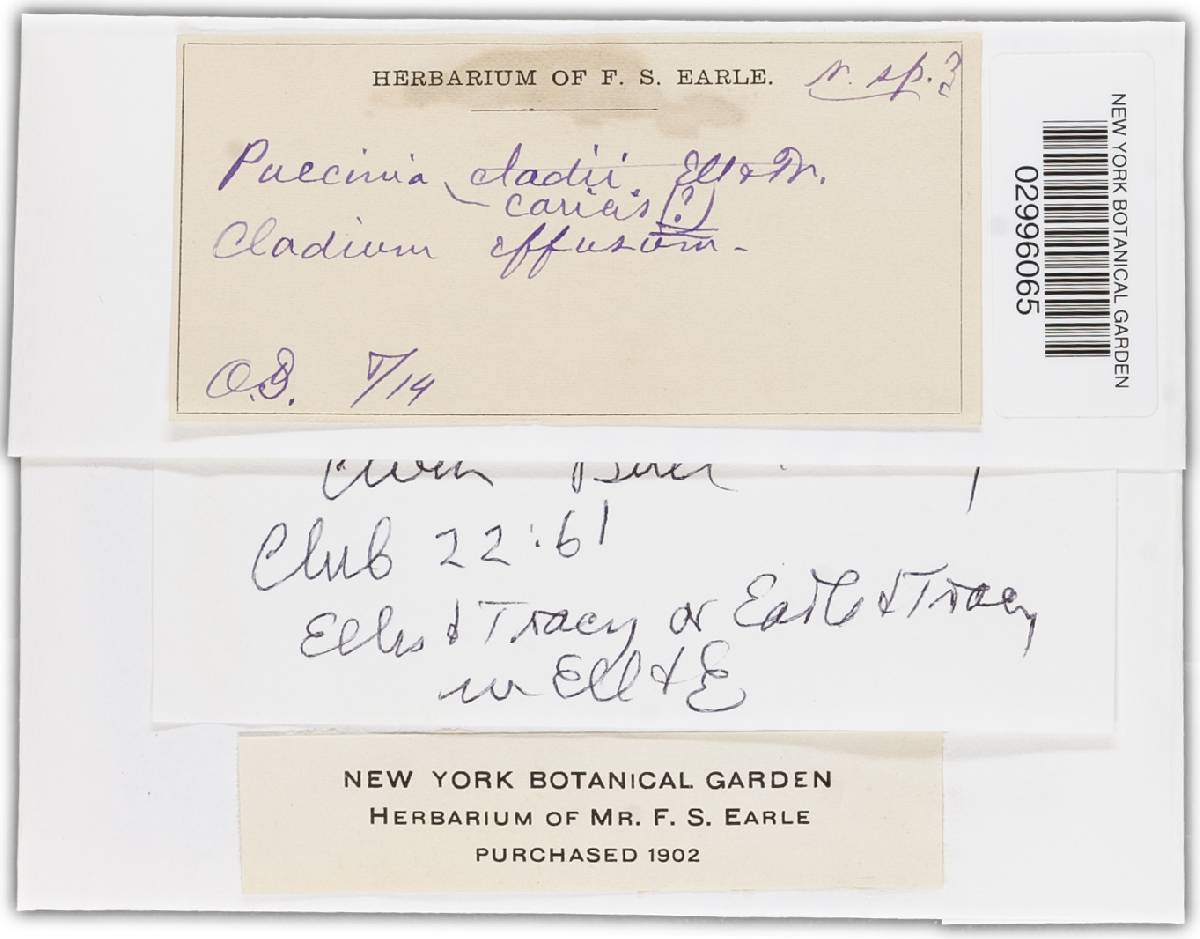 HERBARIUM OF F. S. EARLE.
n. sp.?
Puccinia cladii Ell & Tr.
caricis (?)
Cladium effusum.
O.S. 7/14
NEW YORK BOTANICAL GARDEN
02996065
Club 22:61
Ellis & Tracy or Earle & Tracy
in Ell & E
NEW YORK BOTANICAL GARDEN
HERBARIUM OF MR. F. S. EARLE
PURCHASED 1902